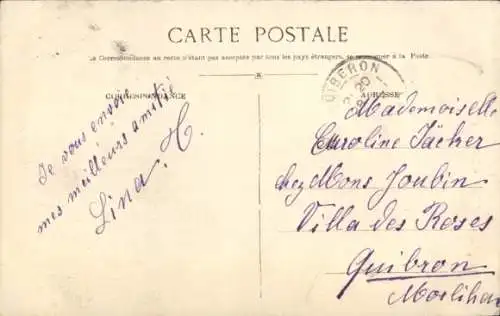 CARTE POSTALE
La Correspondance au recto n'étant pas acceptée par tous les pays étrangers, se renseigner à la Poste
CORRESPONDANCE
ADRESSE
QUIBERON
20
Je vous envoie
mes meilleurs amitié
Lina. H.
Mademoiselle
Caroline Jäcker
chez Mons Joubin
Villa des Roses
Quibron
Morbihan